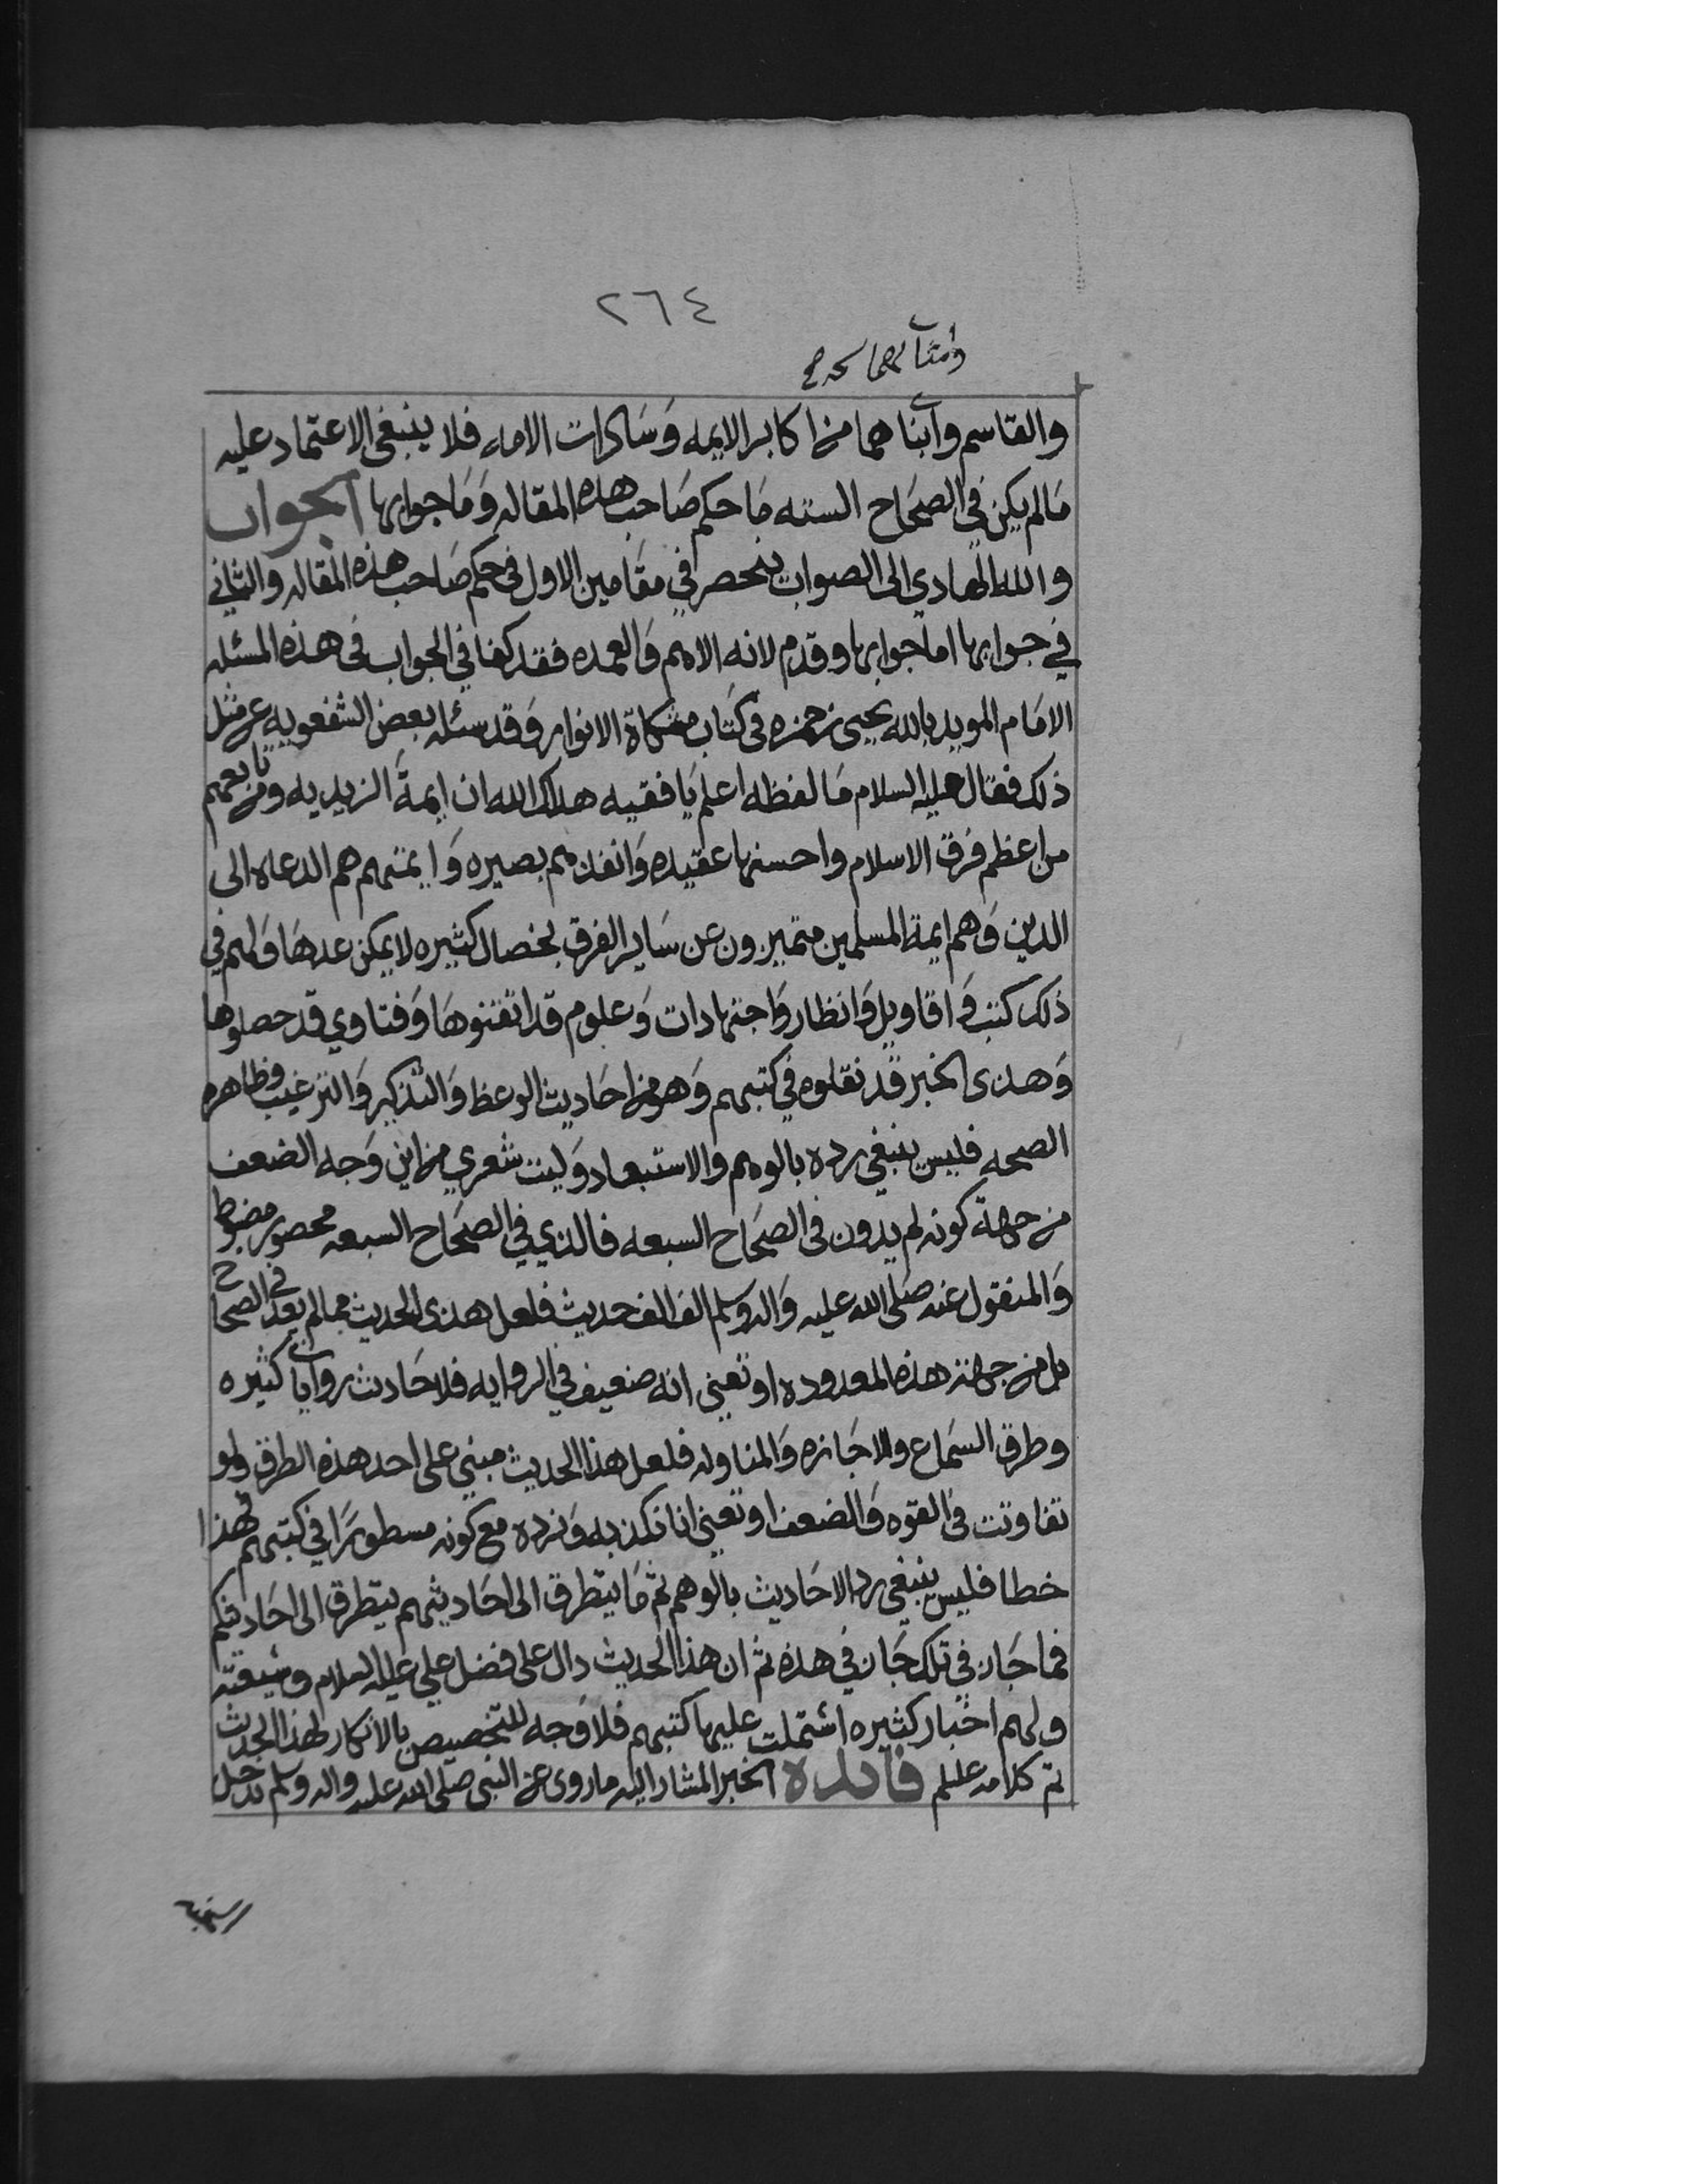 ٢٦٤
وامثالهما
والقاسم وابنا هما من اكابر الايمه وَسَادات الامه فلا ينبغي الاعتماد عليه
مَا لم يكن في الصحَاح السته مَا حكم صَاحب هذه المقاله وَمَا جوابها الجواب
والله الهادي الى الصواب ينحصر في مقَامين الاول في حكم صَاحب هذه المقاله والثاني
في جوابها اما جوابها وقدم لانه الاهم وَالعمده فقد كفا في الجواب في هذه المسئله
الامَام المويد بالله يحيى بن حمزه في كتاب مشكاة الانوار وَقد سئله بعض الشفعويه عن مثل
ذلك فقال عليه السلام مَا لفظه اعلم يَا فقيه هداك الله ان ايمةَ الزيديه ومن تابعهم
من اعظم فرق الاسلام واحسنها عقيده وَانفذهم بصيره وَايمتهم هم الدعاه الى
الدين وَهم ايمة المسلمين متميزون عن سَاير الفرق بخصال كثيره لا يمكن عدهَا وَلهم في
ذلك كتب وَاقاويل وَانظار وَاجتهادات وَعلوم قد اتقنوهَا وَفتاوي قد حصلوها
وَهذى الخبر قد نقلوه في كتبهم وَهو من احَاديث الوعظ وَالتذكير وَالترغيب وظاهره
الصحه فليس ينبغي رده بالوهم والاستبعاد وَليت شعري من اين وَجه الضعف
من جهة كونه لم يدون في الصحَاح السبعه فالذي في الصحَاح السبعه محصور مضبوط
وَالمنقول عنه صَلى الله عليه وَاله وسلم الف الف حديث فلعل هذى الحديث مما لم يعد في الصحاح
بل من جهة هذه المعدوده او تعني انه ضعيف في الروايه فلاحَاديث روايات كثيره
وطرق السَماع والاجَازه وَالمناوله فلعل هذا الحديث مبني على احد هذه الطرق ولو
تفاوتت في القوه وَالضعف او تعني انا نكذبه وَنرده مع كونه مسطورًا في كتبهم فهذا
خطا فليس ينبغي رد الاحَاديث بالوهم ثم مَا يتطرق الى احَاديثهم يتطرق الى احَاديثكم
فما جَاز في تلك جَاز في هذه ثم ان هذا الحديث دال على فضل علي عليه السلام وشيعته
ولهم اخبار كثيره اشتملت عليها كتبهم فلاوَجه للتخصيص بالانكار لهذا الحديث
تم كلامه عليلم فائده الخبر المشار اليه ما روى عن النبي صَلى الله عليه واله وسلم يدخل